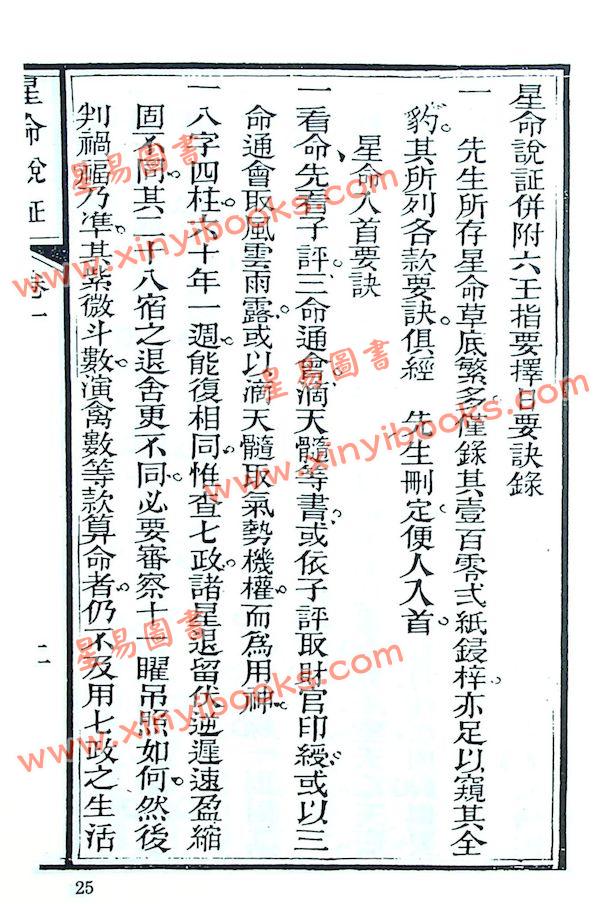 星命說証併附六壬指要擇日要訣錄
一　先生所存星命草底繁多僅錄其壹百零弍紙鋟样亦足以窺其全
豹其所列各款要訣俱經　先生刪定便人入首
星命入首要訣
一看命先看子評三命通會滴天髓等書或依子評取財官印綬或以三
命通會取風雲雨露或以滴天髓取氣勢機權而為用神
一八字四柱六十年一週能復相同惟查七政諸星退留伏逆遲速盈縮
固不同其二十八宿之退舍更不同必要審察十一曜吊照如何然後
判禍福乃準其紫微斗數演禽數等款算命者仍不及用七政之生活
星命說証
卷一
二
25
星易圖書
www.xinyibooks.com
星易圖書
www.xinyibooks.com
星易圖書
www.xinyibooks.com
星易圖書
www.xinyibooks.com